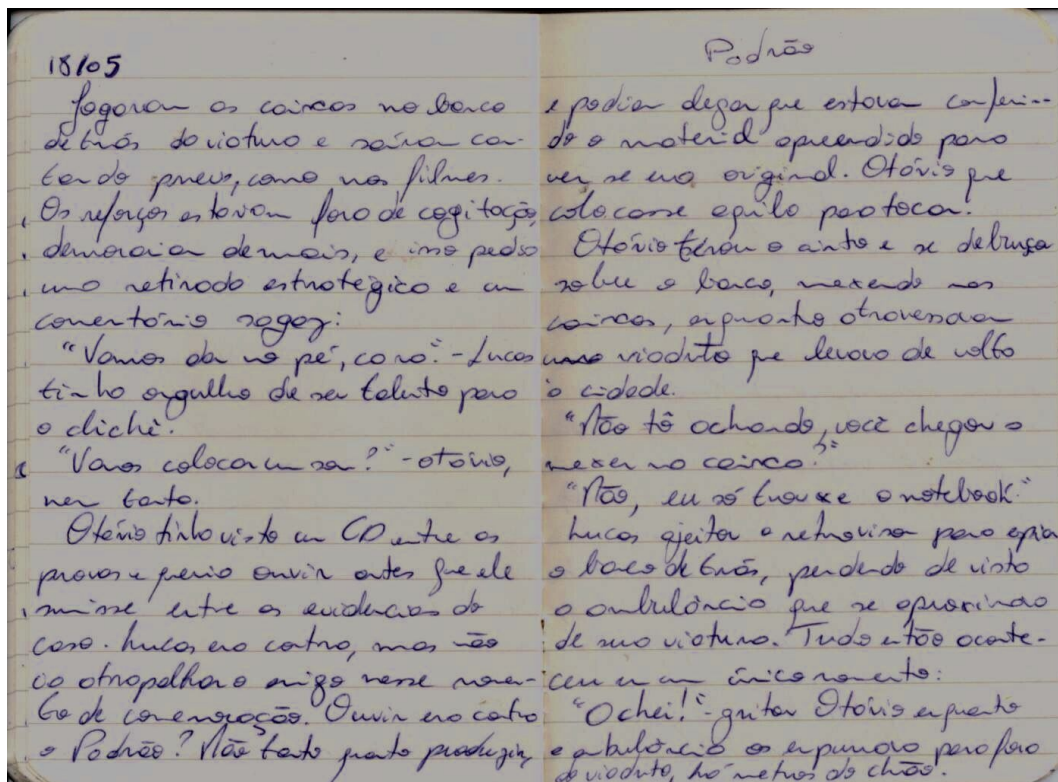 18/05
Jogaram as caixas no banco
de trás da viatura e saíram can-
tando pneus, como nos filmes.
Os reforços estavam fora de cogitação,
demorariam demais, e isso pedia
uma retirada estratégica e um
comentário sagaz:
"Vamos dar no pé, cara." - Lucas
tinha orgulho de seu talento para
o clichê.
"Vamos colocar um som?" - Otávio,
nem tanto.
Otávio tinha visto um CD entre as
provas e queria ouvir antes que ele
sumisse entre as evidencias do
caso. Lucas era contra, mas não
ia atrapalhar o amigo nesse momen-
to de comemoração. Ouvir era contra
o Padrão? Não tanto quanto produzir,
Padrão
e podiam alegar que estavam conferin-
do o material apreendido para
ver se era original. Otávio que
colocasse aquilo pra tocar.
Otávio tirou o cinto e se debruça
sobre o banco, mexendo nas
caixas, enquanto atravessam
uma viaduto que levava de volta
à cidade.
"Não tô achando, você chegou a
mexer na caixa?"
"Não, eu só trouxe o notebook."
Lucas ajeitou o retrovisor para espiar
o banco de trás, perdendo de vista
a ambulância que se aproximava
de sua viatura. Tudo então aconte-
ceu em um único momento:
"Achei!" - gritou Otávio enquanto
a ambulância os empurrava para fora
do viaduto, há metros do chão.